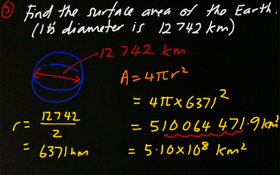 ③ Find the surface area of the Earth.
(Its diameter is 12 742 km)
12 742 km
A = 4πr²
r = 12742/2
= 6371 km
= 4π × 6371²
= 510 064 471.9 km²
= 5.10 × 10⁸ km²